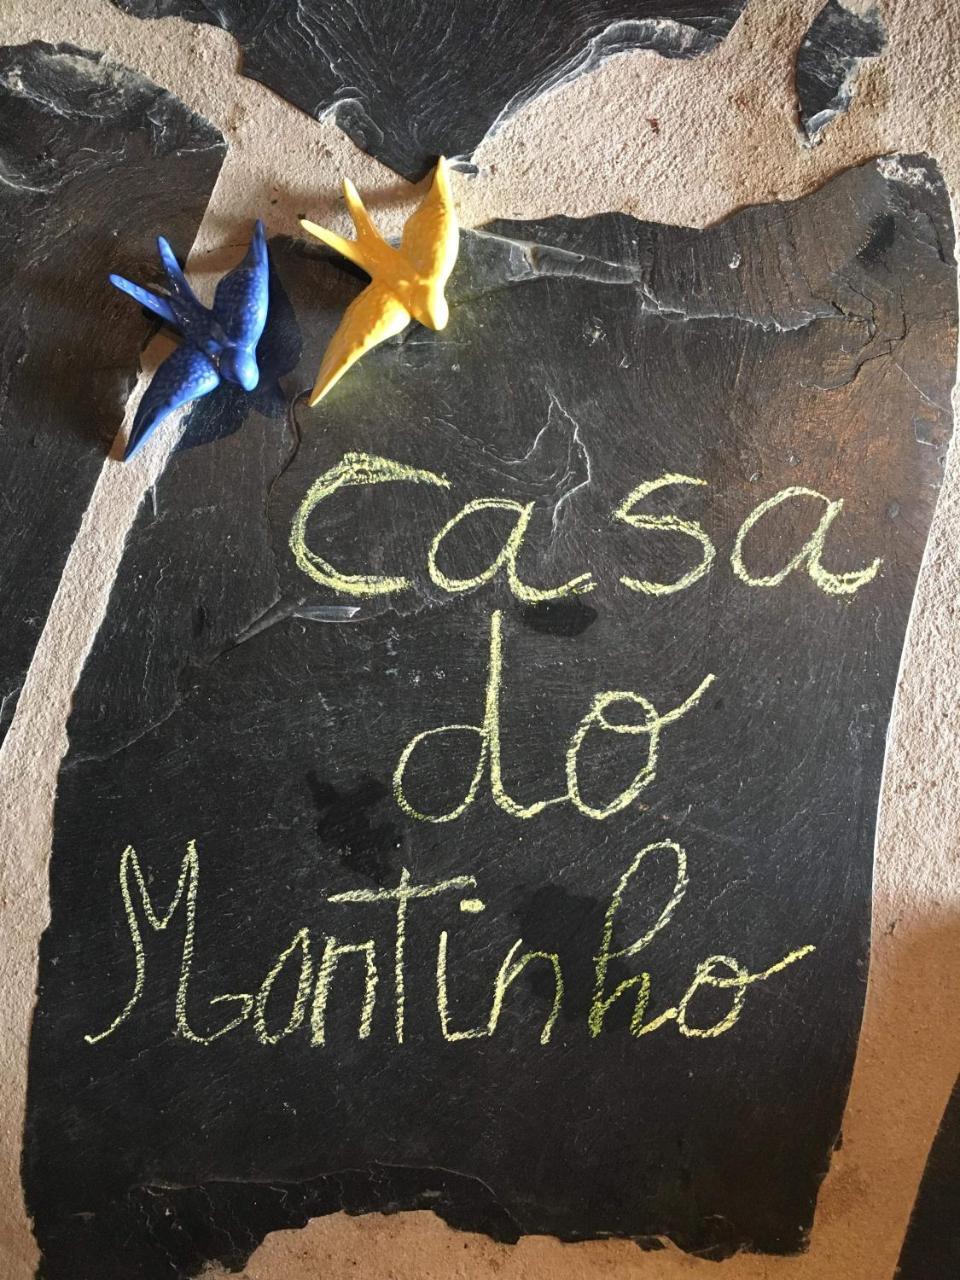 Casa
do
Mantinho